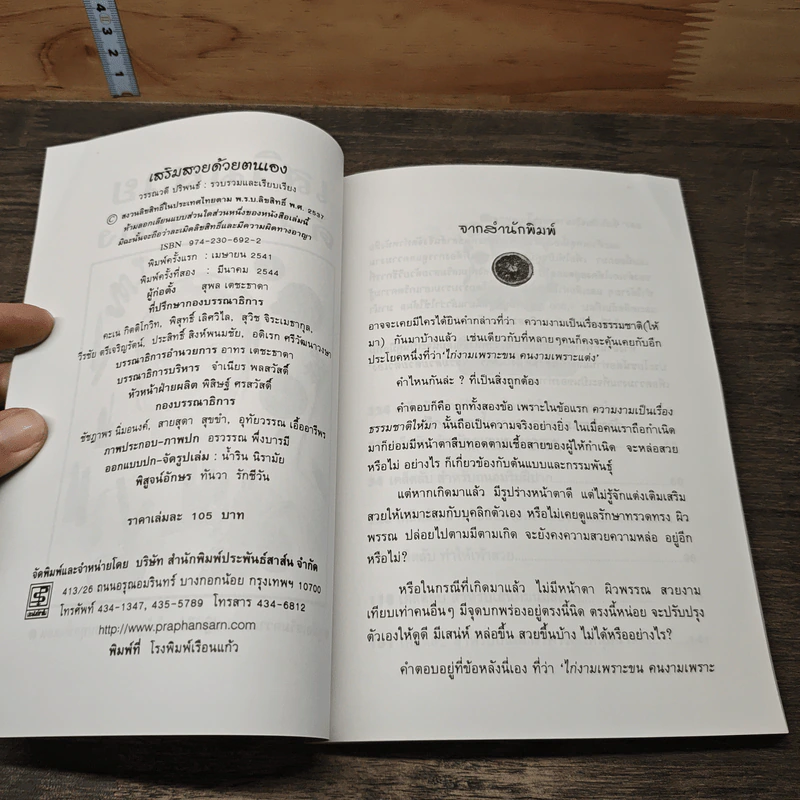 4
3
2
1
เสริมสวยด้วยตนเอง
วรรณวดี ปริพนธ์ : รวบรวมและเรียบเรียง
© สงวนลิขสิทธิ์ในประเทศไทยตาม พ.ร.บ.ลิขสิทธิ์ พ.ศ. 2537
ห้ามลอกเลียนแบบส่วนใดส่วนหนึ่งของหนังสือเล่มนี้
มิฉะนั้นจะถือว่าละเมิดลิขสิทธิ์และมีความผิดทางอาญา
ISBN 974-230-692-2
พิมพ์ครั้งแรก : เมษายน 2541
พิมพ์ครั้งที่สอง : มีนาคม 2544
ผู้ก่อตั้ง สุพล เตชะธาดา
ที่ปรึกษากองบรรณาธิการ
คะเน กิตติโกวิท, พิสุทธิ์ เลิศวิไล, สุวิช จิระเมชากุล,
วีรชัย ตรีเจริญรัตน์, ประสิทธิ์ สิงห์พนมชัย, อดิเรก ศรีวัฒนาวงษา
บรรณาธิการอำนวยการ อาทร เตชะธาดา
บรรณาธิการบริหาร จำเนียร พลสวัสดิ์
หัวหน้าฝ่ายผลิต พิสิษฐ์ ศรสวัสดิ์
กองบรรณาธิการ
ชัชฎาพร นิ่มอนงค์, สายสุดา สุขขำ, อุทัยวรรณ เอื้ออารีพร
ภาพประกอบ-ภาพปก อรวรรณ พึ่งบารมี
ออกแบบปก-จัดรูปเล่ม : น้ำริน นิรามัย
พิสูจน์อักษร ทันวา รักชีวัน
ราคาเล่มละ 105 บาท
จัดพิมพ์และจำหน่ายโดย บริษัท สำนักพิมพ์ประพันธ์สาส์น จำกัด
413/26 ถนนอรุณอมรินทร์ บางกอกน้อย กรุงเทพฯ 10700
โทรศัพท์ 434-1347, 435-5789 โทรสาร 434-6812
http://www.praphansarn.com
พิมพ์ที่ โรงพิมพ์เรือนแก้ว
จากสำนักพิมพ์
อาจจะเคยมีใครได้ยินคำกล่าวที่ว่า ความงามเป็นเรื่องธรรมชาติ(ให้
มา) กันมาบ้างแล้ว เช่นเดียวกับที่หลายๆคนก็คงจะคุ้นเคยกับอีก
ประโยคหนึ่งที่ว่า‘ไก่งามเพราะขน คนงามเพราะแต่ง’
คำไหนกันล่ะ ? ที่เป็นสิ่งถูกต้อง
คำตอบก็คือ ถูกทั้งสองข้อ เพราะในข้อแรก ความงามเป็นเรื่อง
ธรรมชาติให้มา นั้นถือเป็นความจริงอย่างยิ่ง ในเมื่อคนเราถือกำเนิด
มาก็ย่อมมีหน้าตาสืบทอดตามเชื้อสายของผู้ให้กำเนิด จะหล่อสวย
หรือไม่ อย่างไร ก็เกี่ยวข้องกับต้นแบบและกรรมพันธุ์
แต่หากเกิดมาแล้ว มีรูปร่างหน้าตาดี แต่ไม่รู้จักแต่งเติมเสริม
สวยให้เหมาะสมกับบุคลิกตัวเอง หรือไม่เคยดูแลรักษาทรวดทรง ผิว
พรรณ ปล่อยไปตามมีตามเกิด จะยังคงความสวยความหล่อ อยู่อีก
หรือไม่?
หรือในกรณีที่เกิดมาแล้ว ไม่มีหน้าตา ผิวพรรณ สวยงาม
เทียบเท่าคนอื่นๆ มีจุดบกพร่องอยู่ตรงนี้นิด ตรงนี้หน่อย จะปรับปรุง
ตัวเองให้ดูดี มีเสน่ห์ หล่อขึ้น สวยขึ้นบ้าง ไม่ได้หรืออย่างไร?
คำตอบอยู่ที่ข้อหลังนี่เอง ที่ว่า ‘ไก่งามเพราะขน คนงามเพราะ